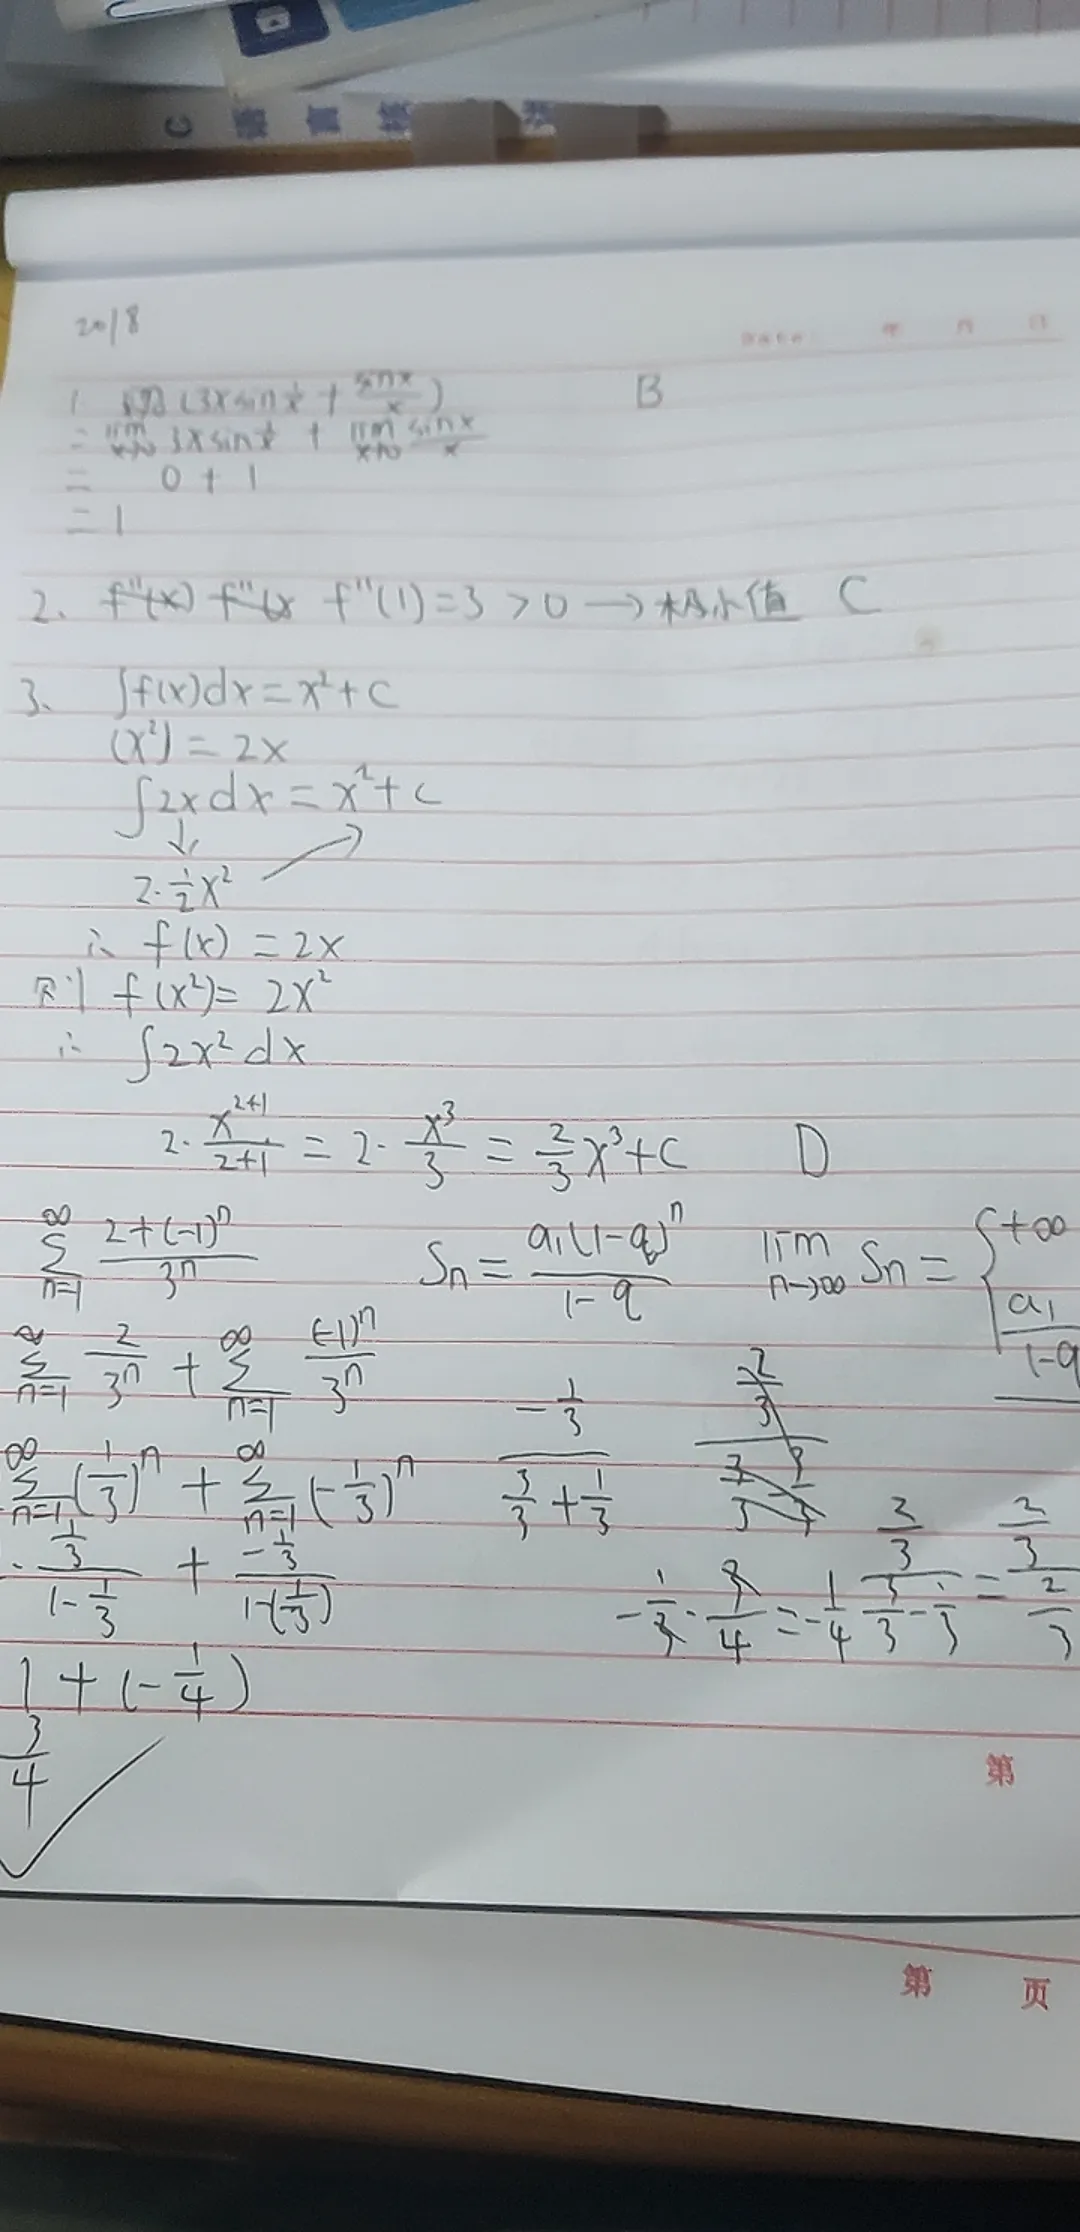 C 语言
2018
1. (3xsin 1/x + sinx/x) B
= lim 3xsin 1/x + lim sinx/x
= 0 + 1
= 1
2. f"(x) f"(x f"(1)=3>0→极小值 C
3. ∫f(x)dx=x²+C
(x²)'=2x
∫2xdx=x²+C
2·1/2x²
∴ f(x)=2x
则 f(x²)=2x²
∴ ∫2x²dx
2·x^(2+1)/(2+1)=2·x³/3=2/3x³+C D
∞Σn=1 (2+(-1)^n)/3^n Sn=a₁(1-q)^n/(1-q) lim n→∞ Sn={+∞ a₁/(1-q
∞Σn=1 2/3^n + ∞Σn=1 (-1)^n/3^n
∞Σn=1 (1/3)^n + ∞Σn=1 (-1/3)^n (-1/3)/(3/3+1/3)
· (1/3)/(1-1/3) + (-1/3)/(1-(1/3)) -1/3·3/4=-1/4 (2/3)/(3/3-1/3)=(2/3)/(2/3)
1+(-1/4)
3/4
第
第 页